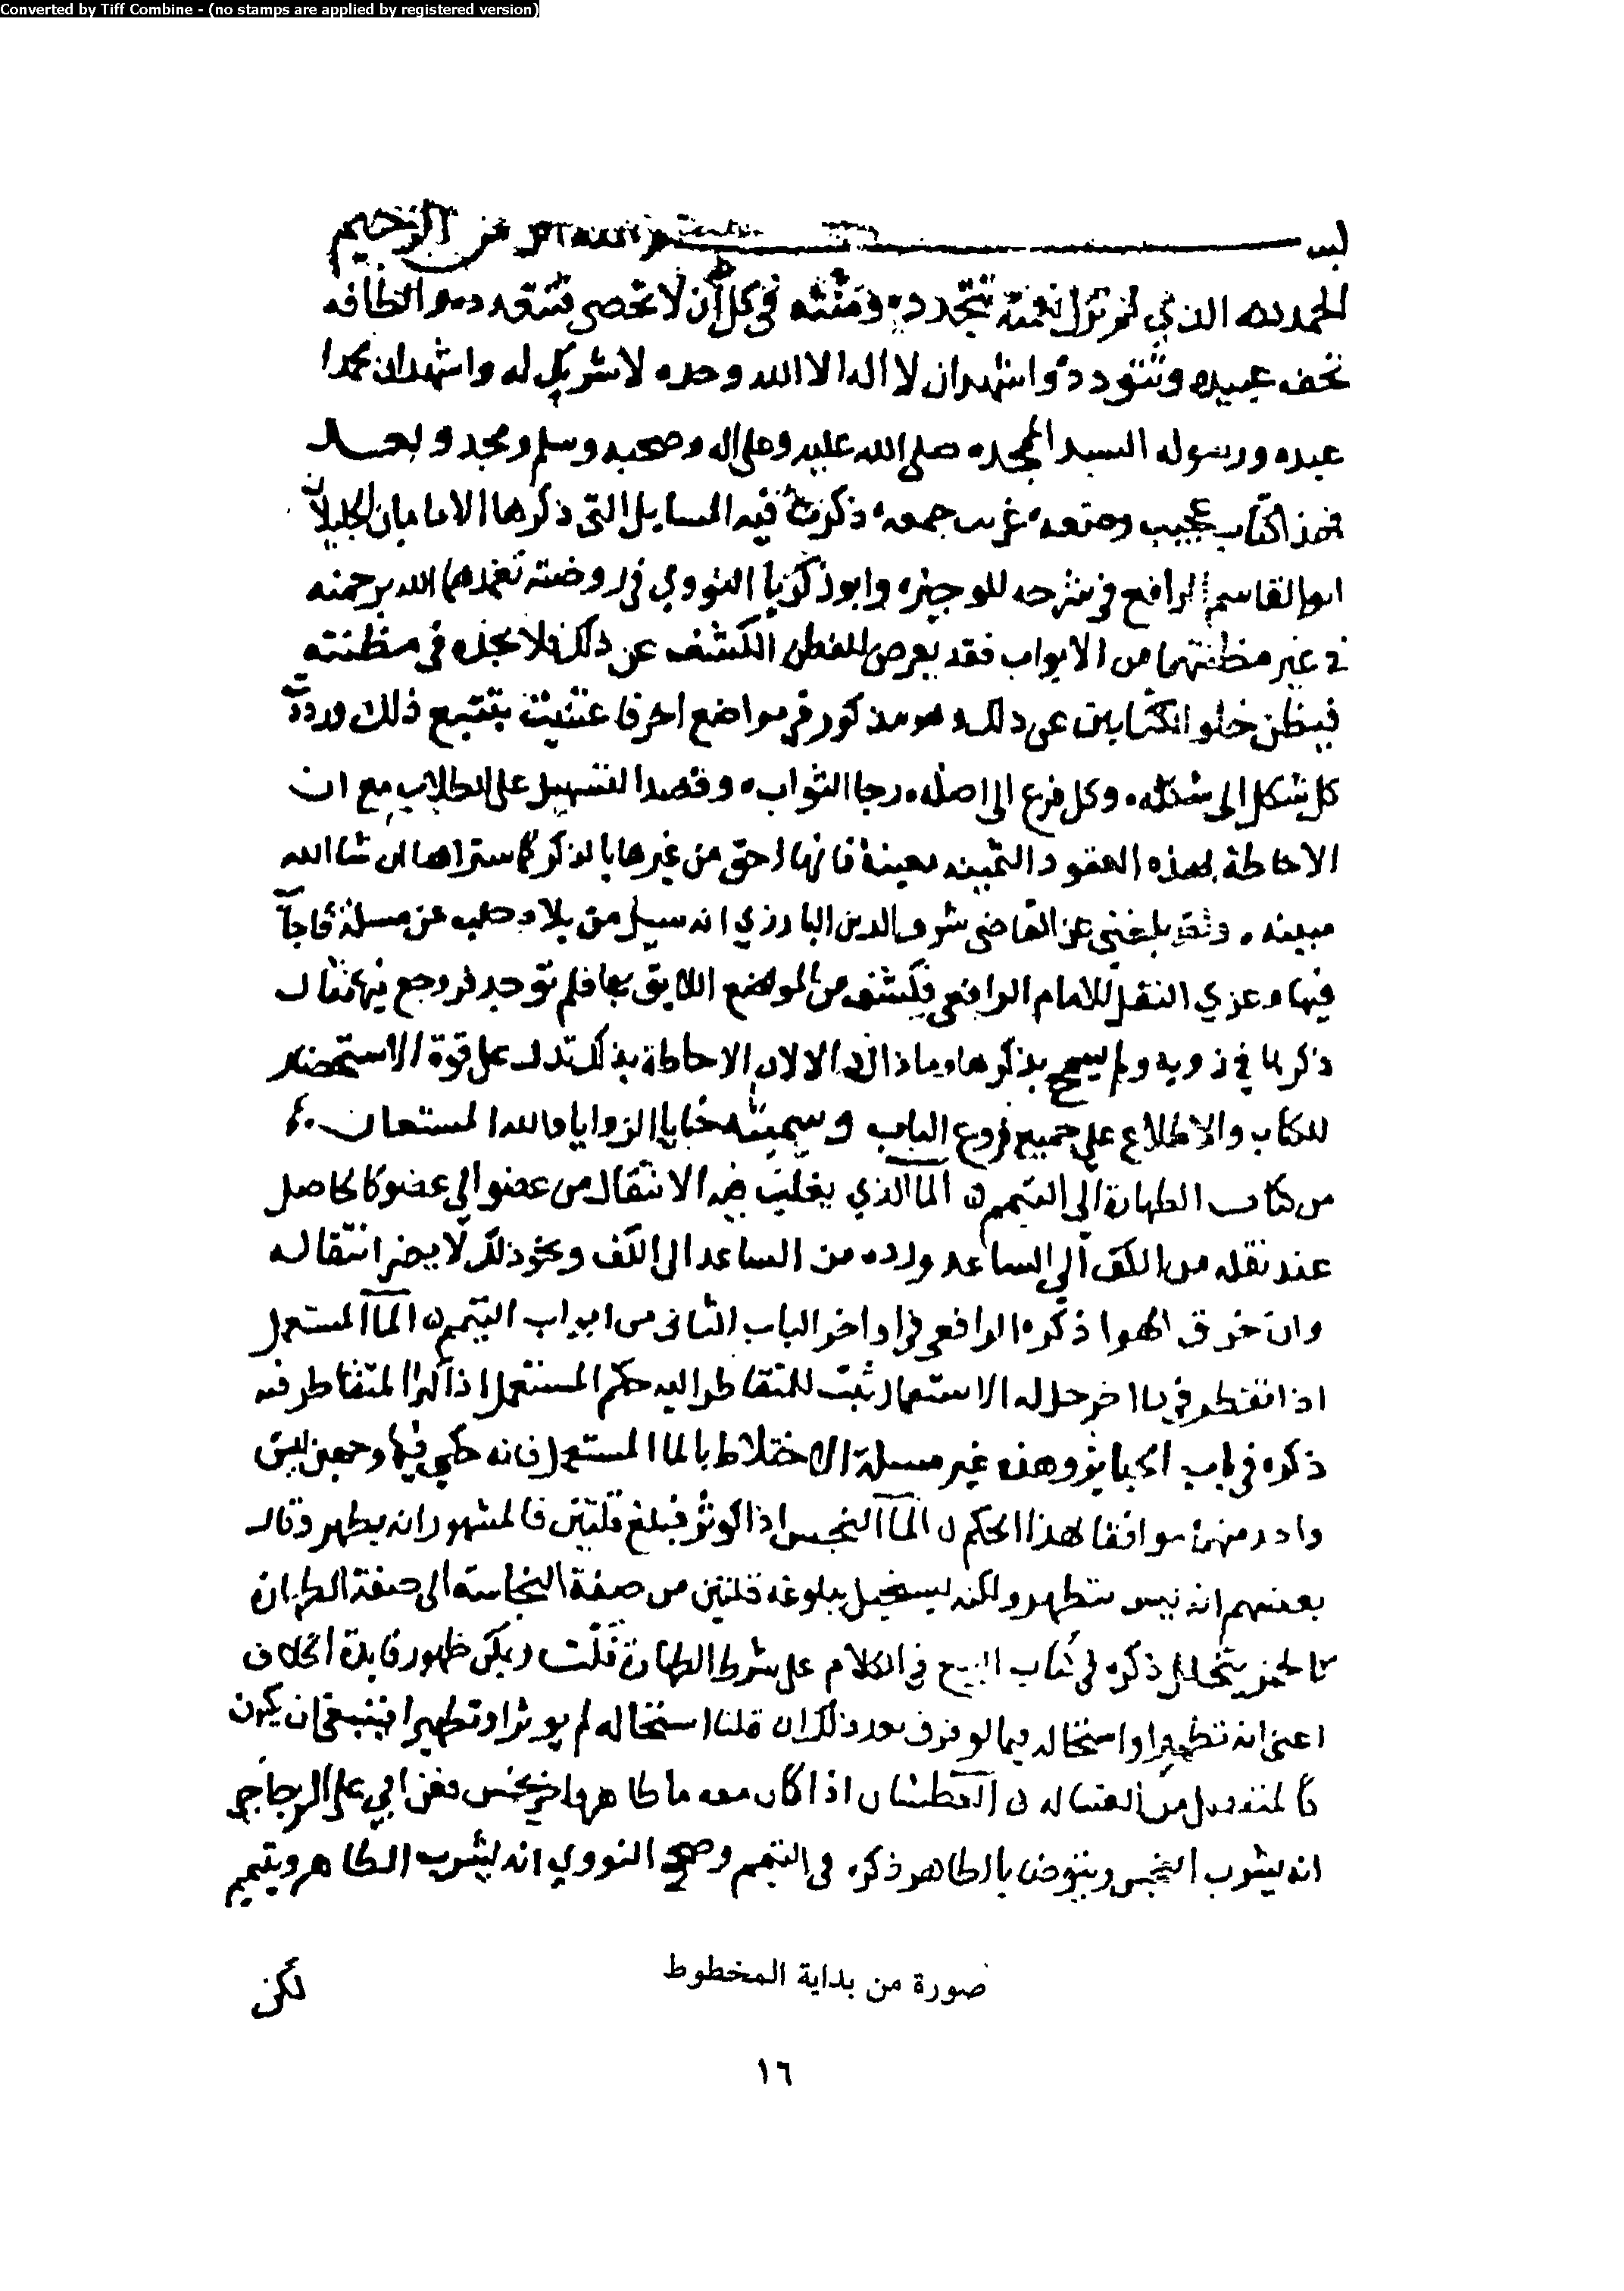 Converted by Tiff Combine - (no stamps are applied by registered version)
بسم الله الرحمن الرحيم
الحمد لله الذي لم تزل نعمته تتجدد ومنته في كل آن لا تحصى تتعدد والطافه
تحف عبيده وتتودد واشهد ان لا اله الا الله وحده لا شريك له واشهد ان محمدا
عبده ورسوله السيد الممجد صلى الله عليه وعلى اله وصحبه وسلم ومجد وبعد
فهذا كتاب عجيب وضعه غريب جمعه ذكرت فيه المسايل التي ذكرها الامامان الجليلان
ابو القاسم الرافعي في شرحه للوجيز وابو زكريا النووي في روضته تغمدهما الله برحمته
في غير مظنتهما من الابواب فقد يعرض للفطن الكشف عن ذلك فلا يجده في مظنته
فيظن خلو الكتابين عن ذلك وهو مذكور في مواضع اخر فاعتنيت بتتبع ذلك ورددت
كل شكل الى شكله وكل فرع الى اصله رجا الثواب وقصدا لتسهيل على الطلاب مع ان
الاحاطة بهذه العقود الثمينه فانها احق من غيرها بالذكر كما ستراها ان شا الله
مبينه ولقد بلغني عن القاضي شرف الدين البارزي انه سيل من بلاد حلب عن مسلة فاجاب
فيها وعزي النقل للامام الرافعي فكشف من الموضع اللايق بها فلم توجد فروجع فيها فقال
ذكرها في زويه ولم يسمح بذكرها وما ذاك الا لان الاحاطة بذلك تدل على قوة الاستحضار
للكتاب والاطلاع على جميع فروع الباب وسميته خبايا الزوايا والله المستعان
من كتاب الطهارة الى التيمم الما الذي يغلب فيه الانتقال من عضو الى عضو كالحاصل
عند نقله من الكف الى الساعد ورده من الساعد الى الكف ونحو ذلك لا يضر انتقاله
وان خرق الهوا ذكره الرافعي في اواخر الباب الثاني من ابواب التيمم الما المستعمل
اذا تقطر في ما اخر حل له الاستعمال ثبت للمتقاطر اليه حكم المستعمل اذا كثر المتقاطر فيه
ذكره في باب الجنايز وهذه غير مسلة الاختلاط بالما المستعمل فانه حكي فيها وجهين ليس
واحد منهما موافقا لهذا الحكم الما النجس اذا كوثر فبلغ قلتين فالمشهور انه يطهر وقال
بعضهم انه ليس بتطهر ولكنه يستحيل ببلوغه قلتين من صفة النجاسة الى صفة الطهارة
كالخمر يتخلل ذكره في كتاب البيع في الكلام على شرط الطهارة قلت ويمكن ظهور فايدة الخلاف
اعني انه تطهير او استحالة فيما لو فرق بعد ذلك ان قلنا استحاله لم يوثر او تطهيرا فينبغي ان يكون
كالمنفصل من الغساله العطشان اذا كان معه ما طاهر واخر نجس فعن ابي علي الزجاجي
انه يشرب النجس ويتوضا بالطاهر ذكره في التيمم وصحح النووي انه يشرب الطاهر ويتيمم
لكن
صورة من بداية المخطوط
١٦